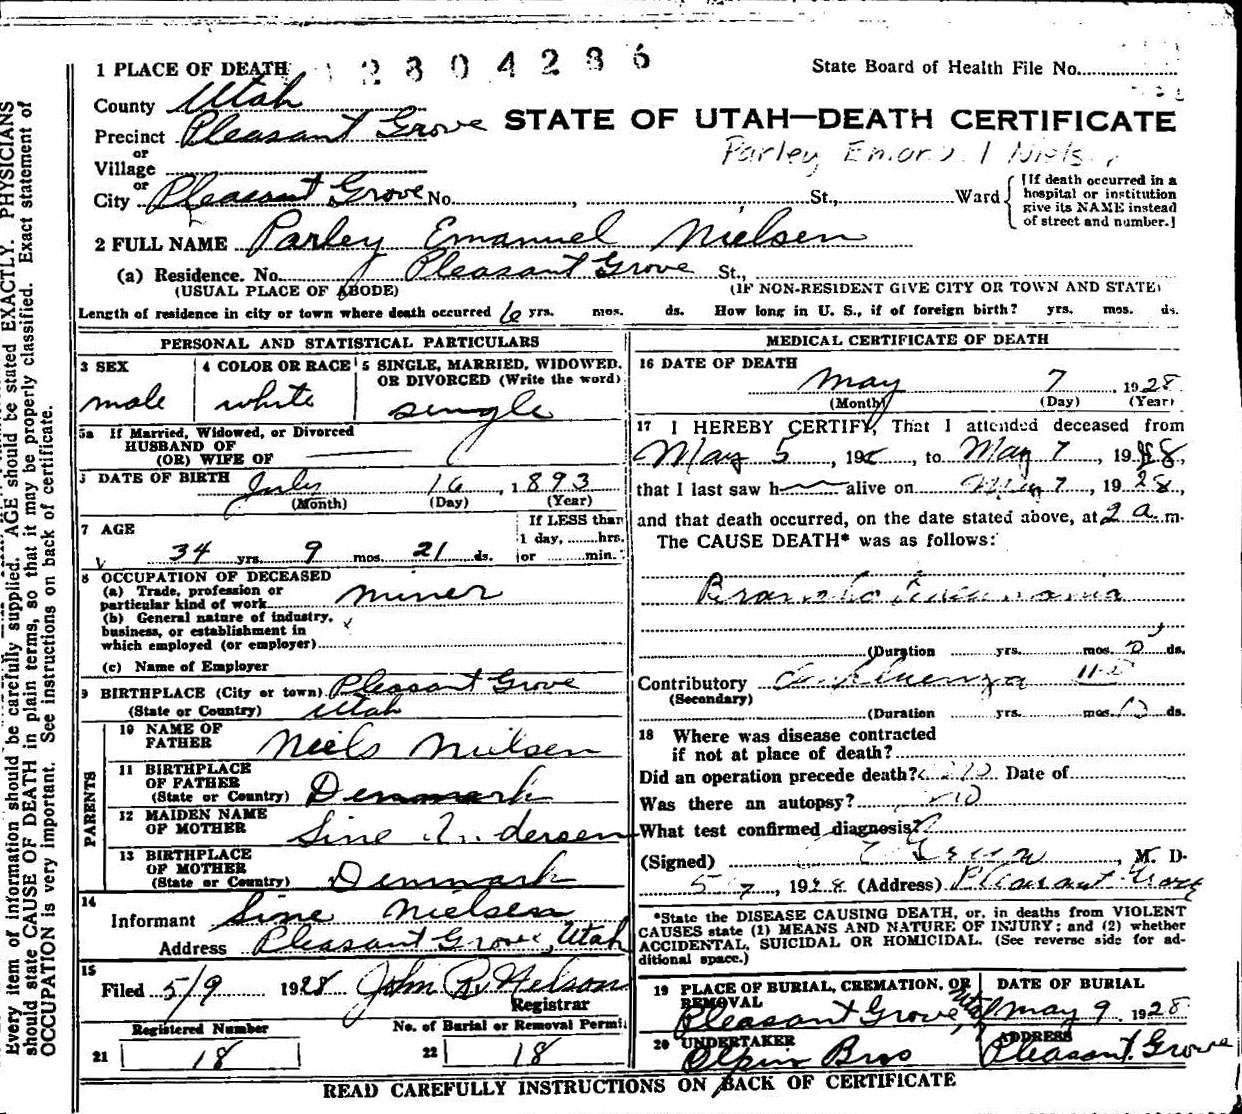 Every item of information should be carefully supplied. AGE should be stated EXACTLY. PHYSICIANS
should state CAUSE OF DEATH in plain terms, so that it may be properly classified. Exact statement of
OCCUPATION is very important. See instructions on back of certificate.
2304286
1 PLACE OF DEATH
State Board of Health File No.
County Utah
STATE OF UTAH—DEATH CERTIFICATE
Precinct Pleasant Grove
Parley
or
Village
or
City Pleasant Grove No. , St., Ward
[If death occurred in a
hospital or institution
give its NAME instead
of street and number.]
2 FULL NAME Parley Emanuel Nielsen
(a) Residence. No. Pleasant Grove St.,
(USUAL PLACE OF ABODE)
(IF NON-RESIDENT GIVE CITY OR TOWN AND STATE)
Length of residence in city or town where death occurred 6 yrs. mos. ds. How long in U. S., if of foreign birth? yrs. mos. ds.
PERSONAL AND STATISTICAL PARTICULARS
3 SEX
male
4 COLOR OR RACE
white
5 SINGLE, MARRIED, WIDOWED,
OR DIVORCED (Write the word)
single
5a If Married, Widowed, or Divorced
HUSBAND OF
(OR) WIFE OF
DATE OF BIRTH July 16, 1893
(Month) (Day) (Year)
7 AGE
34 yrs. 9 mos. 21 ds.
If LESS than
1 day, hrs.
or min.
8 OCCUPATION OF DECEASED
(a) Trade, profession or
particular kind of work miner
(b) General nature of industry,
business, or establishment in
which employed (or employer)
(c) Name of Employer
9 BIRTHPLACE (City or town) Pleasant Grove
(State or Country) Utah
PARENTS
10 NAME OF
FATHER Niels Nielsen
11 BIRTHPLACE
OF FATHER
(State or Country) Denmark
12 MAIDEN NAME
OF MOTHER Sine Andersen
13 BIRTHPLACE
OF MOTHER
(State or Country) Denmark
14
Informant Sine Nielsen
Address Pleasant Grove, Utah
15
Filed 5/9 1928 John R. Nelson
Registrar
Registered Number
21 18
No. of Burial or Removal Permit
22 18
MEDICAL CERTIFICATE OF DEATH
16 DATE OF DEATH
May 7, 1928
(Month) (Day) (Year)
17 I HEREBY CERTIFY, That I attended deceased from
May 5, 192, to May 7, 1928,
that I last saw h alive on May 7, 1928,
and that death occurred, on the date stated above, at 2 a. m.
The CAUSE DEATH* was as follows:
(Duration yrs. mos. ds.
Contributory Influenza
(Secondary)
(Duration yrs. mos. ds.
18 Where was disease contracted
if not at place of death?
Did an operation precede death? no Date of
Was there an autopsy? no
What test confirmed diagnosis?
(Signed) , M. D.
5/7, 1928 (Address) Pleasant Grove
*State the DISEASE CAUSING DEATH, or, in deaths from VIOLENT
CAUSES state (1) MEANS AND NATURE OF INJURY; and (2) whether
ACCIDENTAL, SUICIDAL OR HOMICIDAL. (See reverse side for ad-
ditional space.)
19 PLACE OF BURIAL, CREMATION, OR
REMOVAL
Pleasant Grove, Utah
DATE OF BURIAL
May 9 1928
20 UNDERTAKER
Olpin Bros
ADDRESS
Pleasant Grove
READ CAREFULLY INSTRUCTIONS ON BACK OF CERTIFICATE